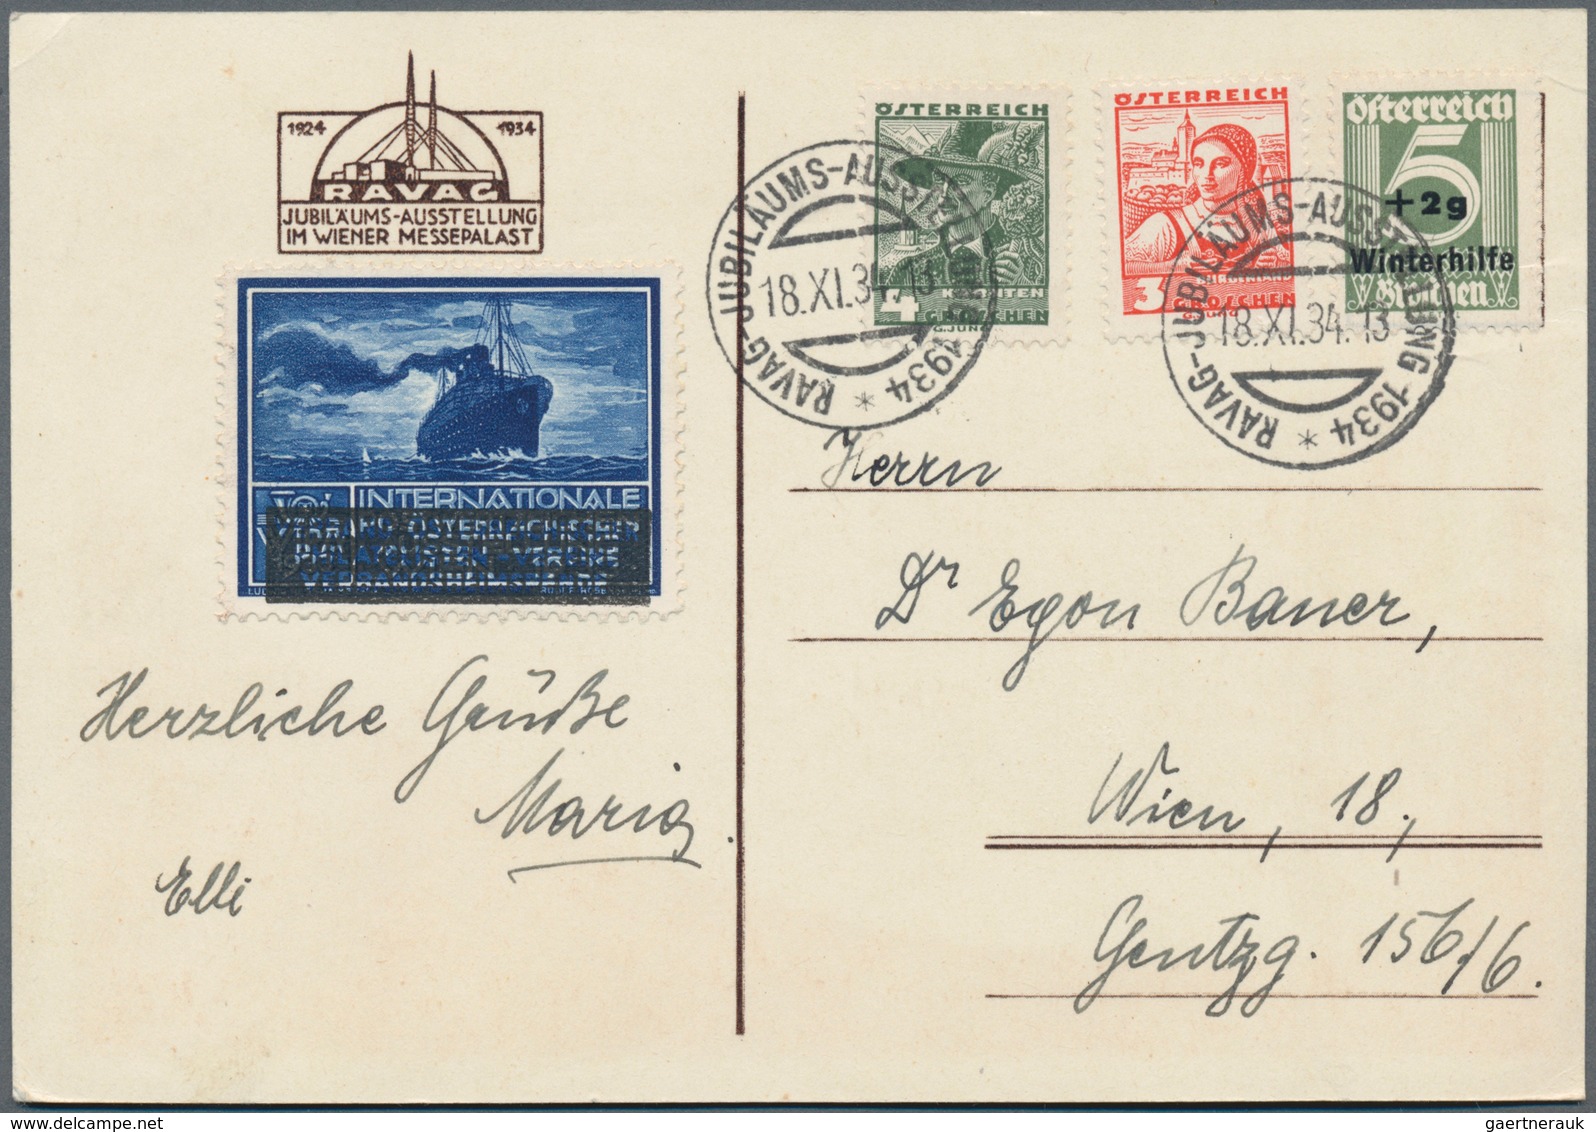 1924 1934
RAVAG
JUBILÄUMS-AUSSTELLUNG
IM WIENER MESSEPALAST
INTERNATIONALE
WIPA
Herzliche Grüße
Maria
Elli
ÖSTERREICH
KÄRNTEN
4 GROSCHEN
ÖSTERREICH
BURGENLAND
3 GROSCHEN
Österreich
5
+2g
Winterhilfe
Groschen
RAVAG-JUBILÄUMS-AUSSTELLUNG 1934 *
18.XI.34.13
RAVAG-JUBILÄUMS-AUSSTELLUNG 1934 *
18.XI.34.13
Herrn
Dr Egon Bauer,
Wien, 18,
Gentzg. 156/6.
gaertnerauk